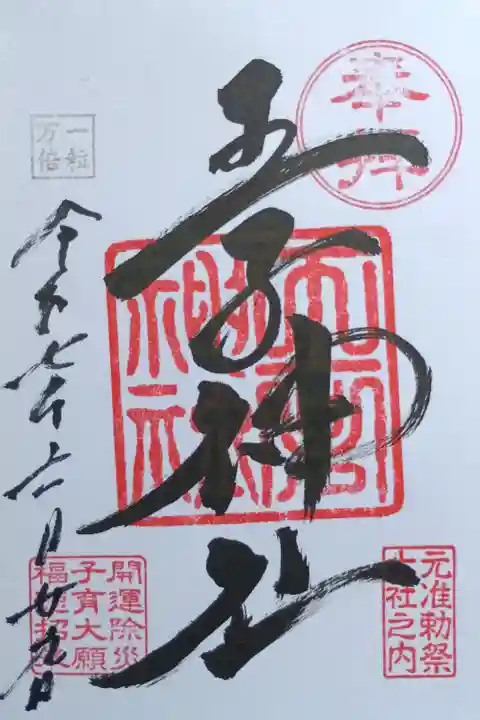 奉拝
王子神社
元准勅祭
十社之内
一粒
万倍
令和七年六月廿九日
開運除災
子育大願
福
招